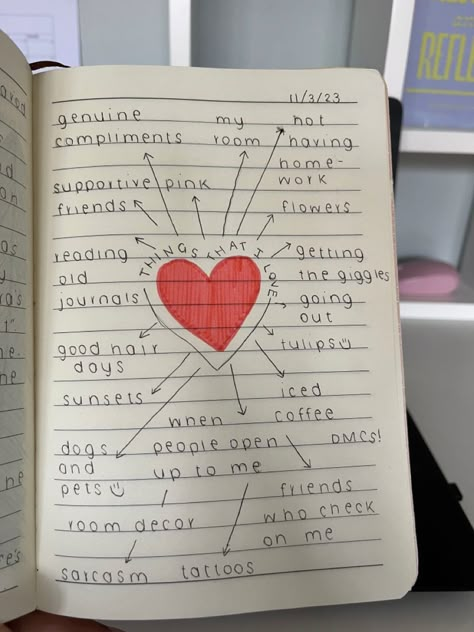 11/3/23
genuine
compliments
my
room
not
having
home-
work
supportive
friends
pink
flowers
THINGS THAT I LOVE
reading
old
journals
getting
the giggles
going
out
good hair
days
tulips☺
sunsets
iced
coffee
when
people open
up to me
DMCS!
dogs
and
pets☺
friends
who check
on me
room decor
sarcasm
tattoos